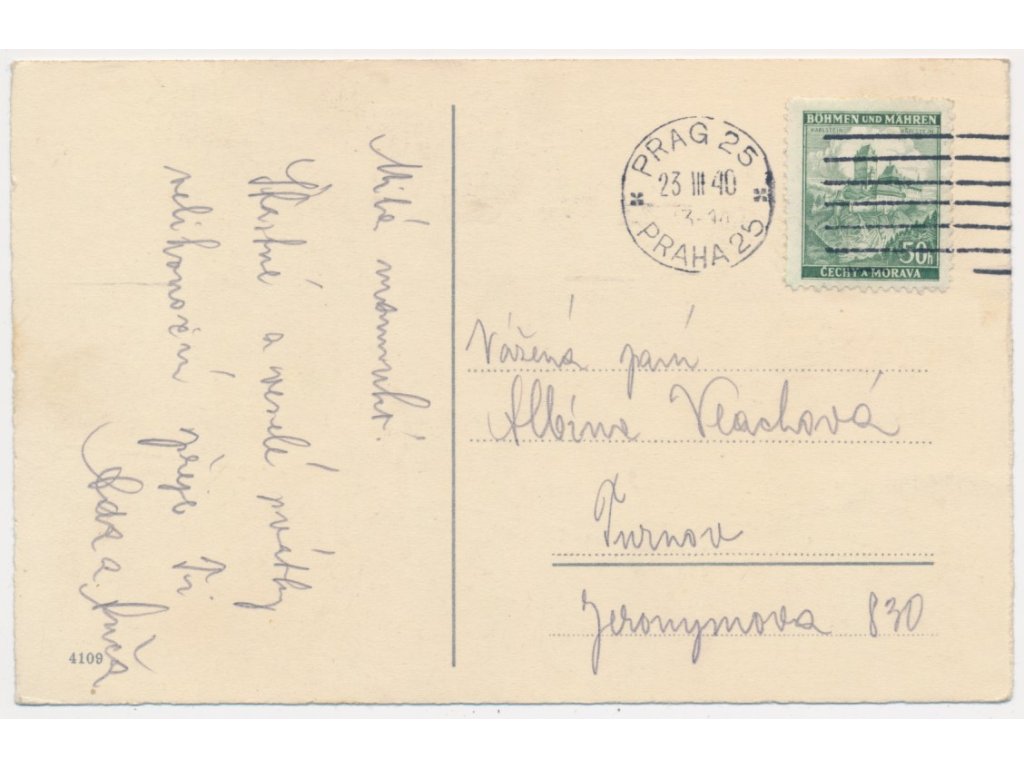 Milá maminko!
Šťastné a veselé svátky
velikonoční přeje Ti
a.
4109
PRAG 25
23 III 40
PRAHA 25
BÖHMEN UND MÄHREN
KARLSTEIN
50h
ČECHY A MORAVA
Vážená paní
Albína Vlachová
Turnov
Jeronymova 830